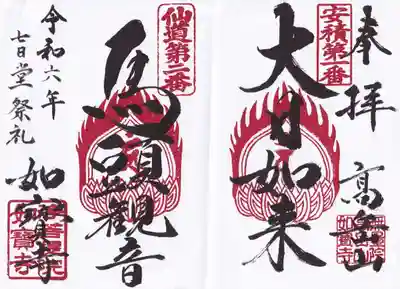 奉拝
安積第一番
大日如来
仙道第二番
馬頭觀音
令和六年
七日堂祭礼
如寳寺
如寳寺